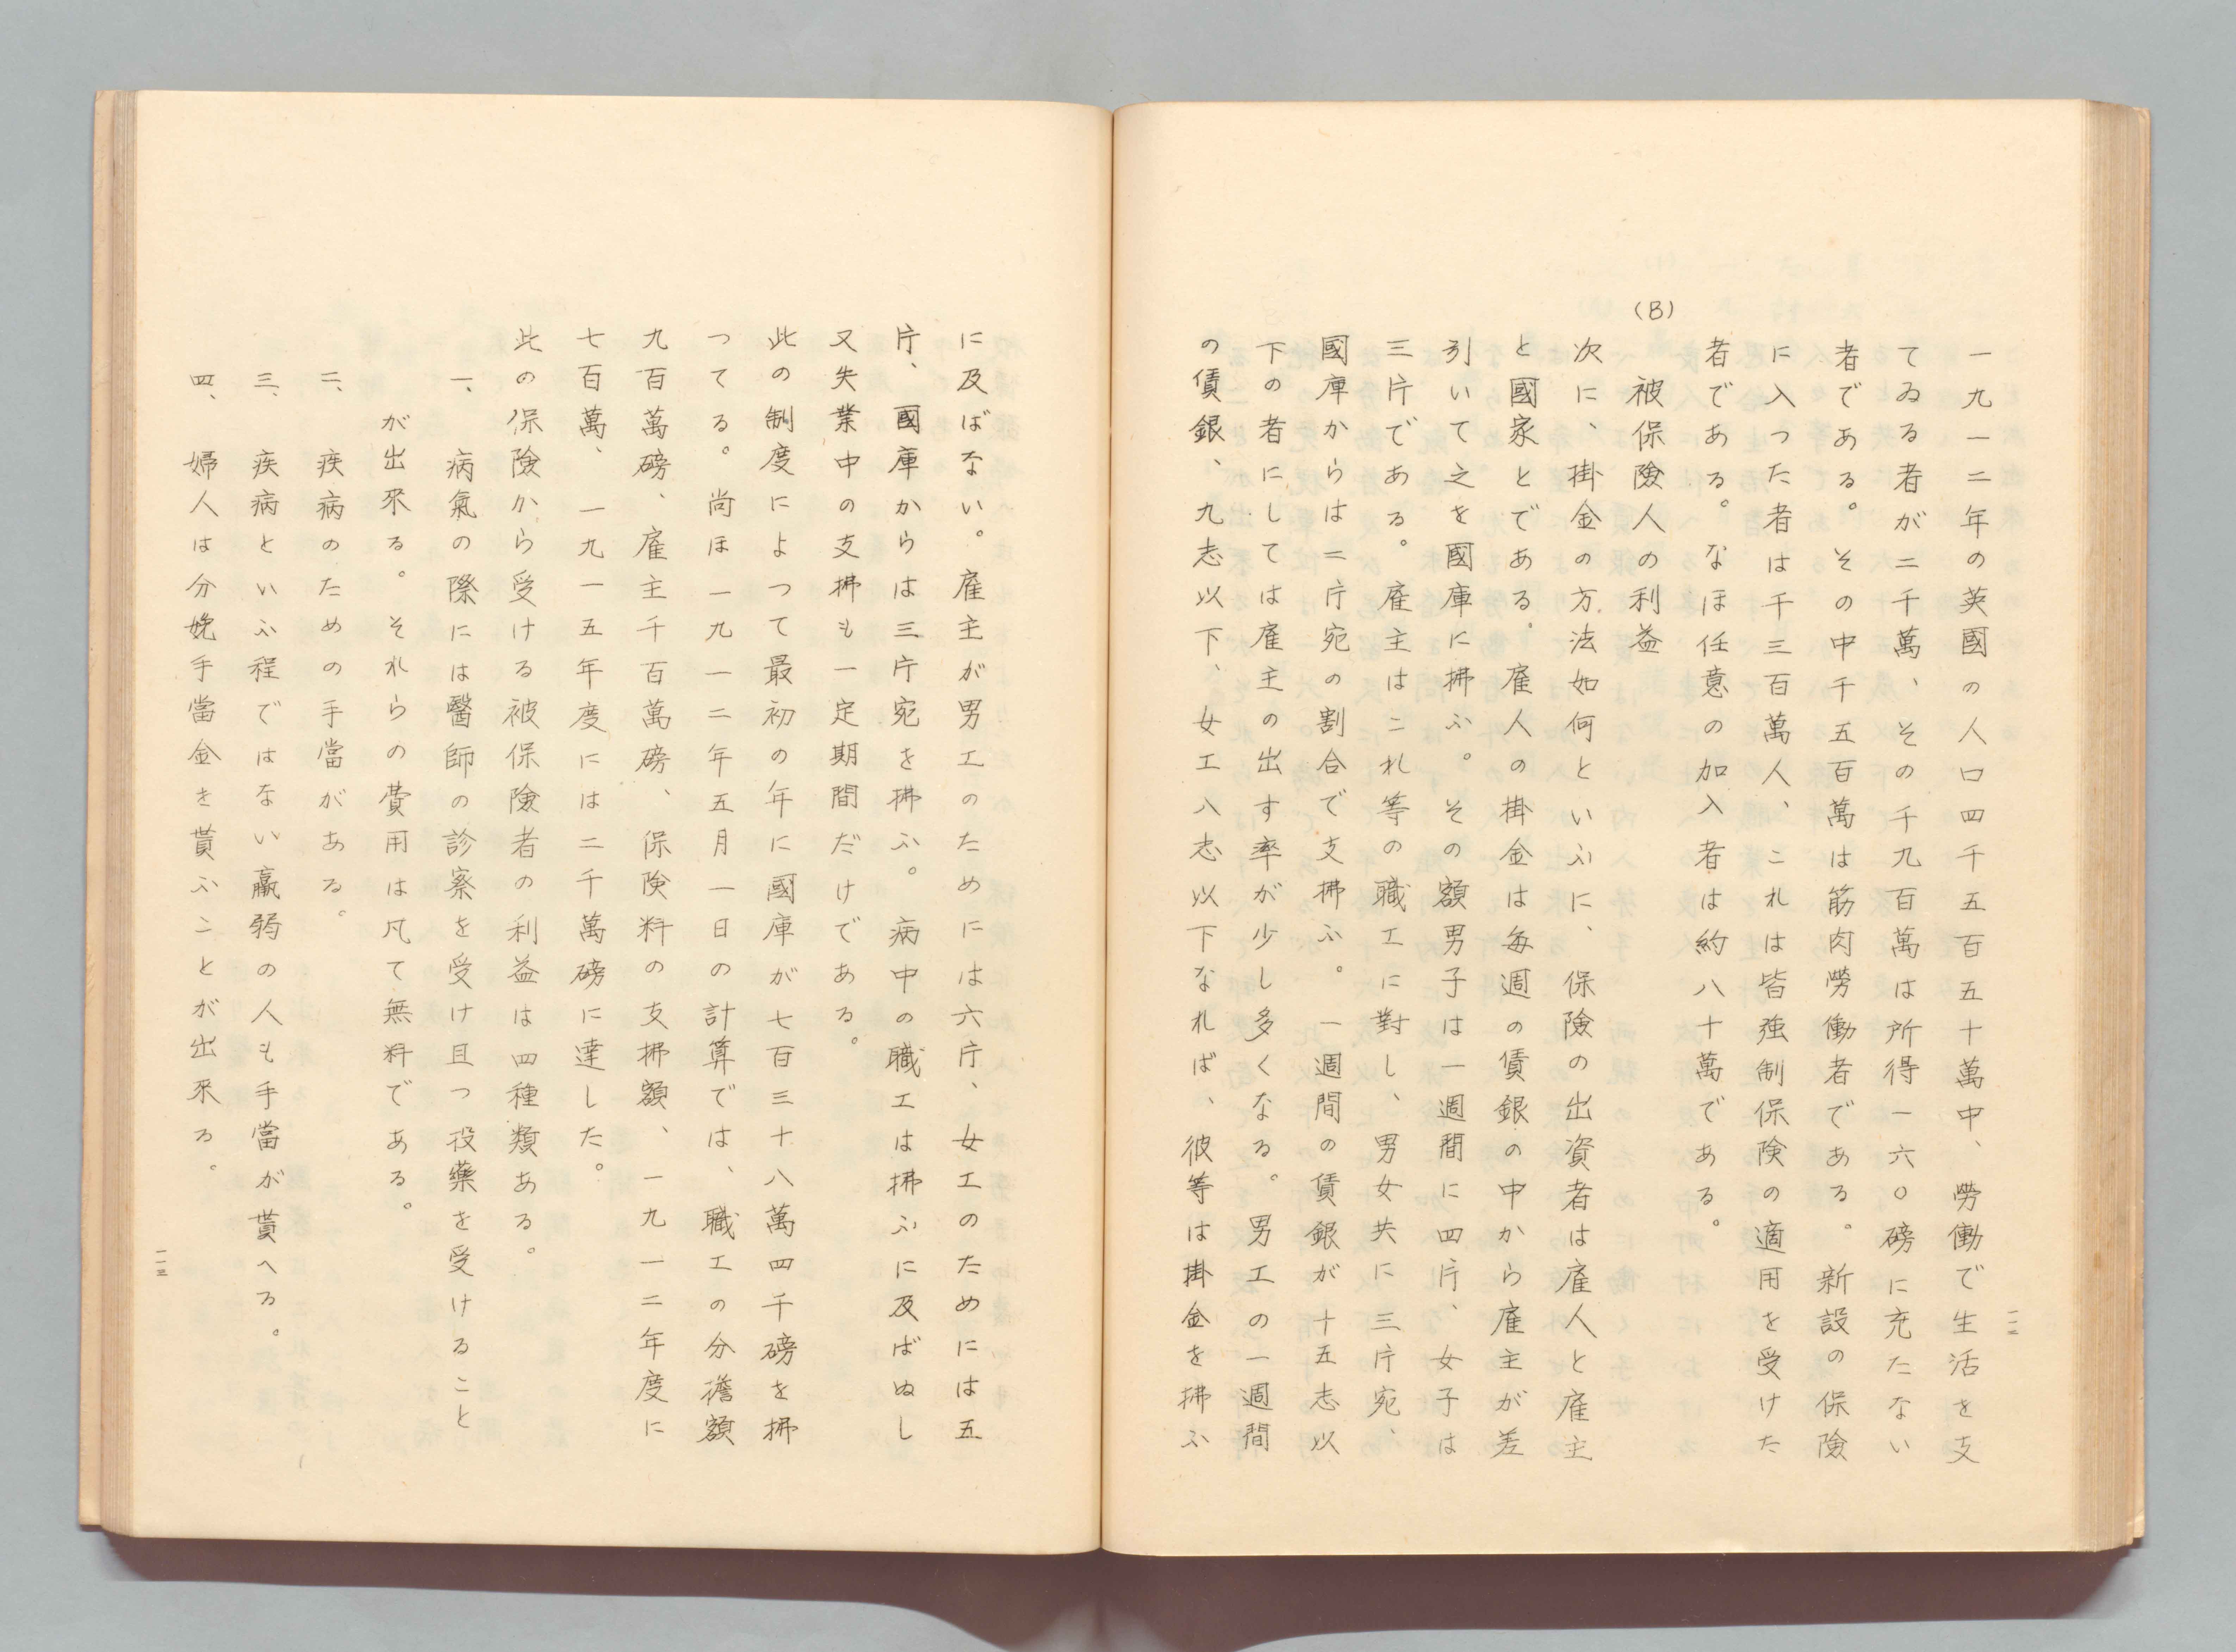 一九一二年の英國の人口四千五百五十萬中、勞働で生活を支
てゐる者が二千萬、その千九百萬は所得一六〇磅に充たない
者である。その中千五百萬は筋肉勞働者である。新設の保險
に入つた者は千三百萬人、これは皆強制保険の適用を受けた
者である。なほ任意の加入者は約八十萬である。
(B) 被保險人の利益
次に、掛金の方法如何といふに、保險の出資者は雇人と雇主
と國家とである。雇人の掛金は每週の賃銀の中から雇主が差
引いて之を國庫に拂ふ。その額男子は一週間に四片、女子は
三片である。雇主はこれ等の職工に對し、男女共に三片宛、
國庫からは二片宛の割合で支拂ふ。一週間の賃銀が十五志以
下の者にしては雇主の出す率が少し多くなる。男工の一週間
の賃銀、九志以下、女工八志以下なれば、彼等は掛金を拂ふ
一一二
に及ばない。雇主が男工のためには六片、女工のためには五
片、國庫からは三片宛を拂ふ。病中の職工は拂ふに及ばぬし
又失業中の支拂も一定期間だけである。
此の制度によつて最初の年に國庫が七百三十八萬四千磅を拂
つてる。尚ほ一九一二年五月一日の計算では、職工の分擔額
九百萬磅、雇主千百萬磅、保険料の支拂額、一九一二年度に
七百萬、一九一五年度には二千萬磅に達した。
此の保險から受ける被保險者の利益は四種類ある。
一、病氣の際には醫師の診察を受け且つ役藥を受けること
が出來る。それらの費用は凡て無料である。
二、疾病のための手當がある。
三、疾病といふ程ではない羸弱の人も手當が貰へる。
四、婦人は分娩手當金を貰ふことが出來る。
一一三